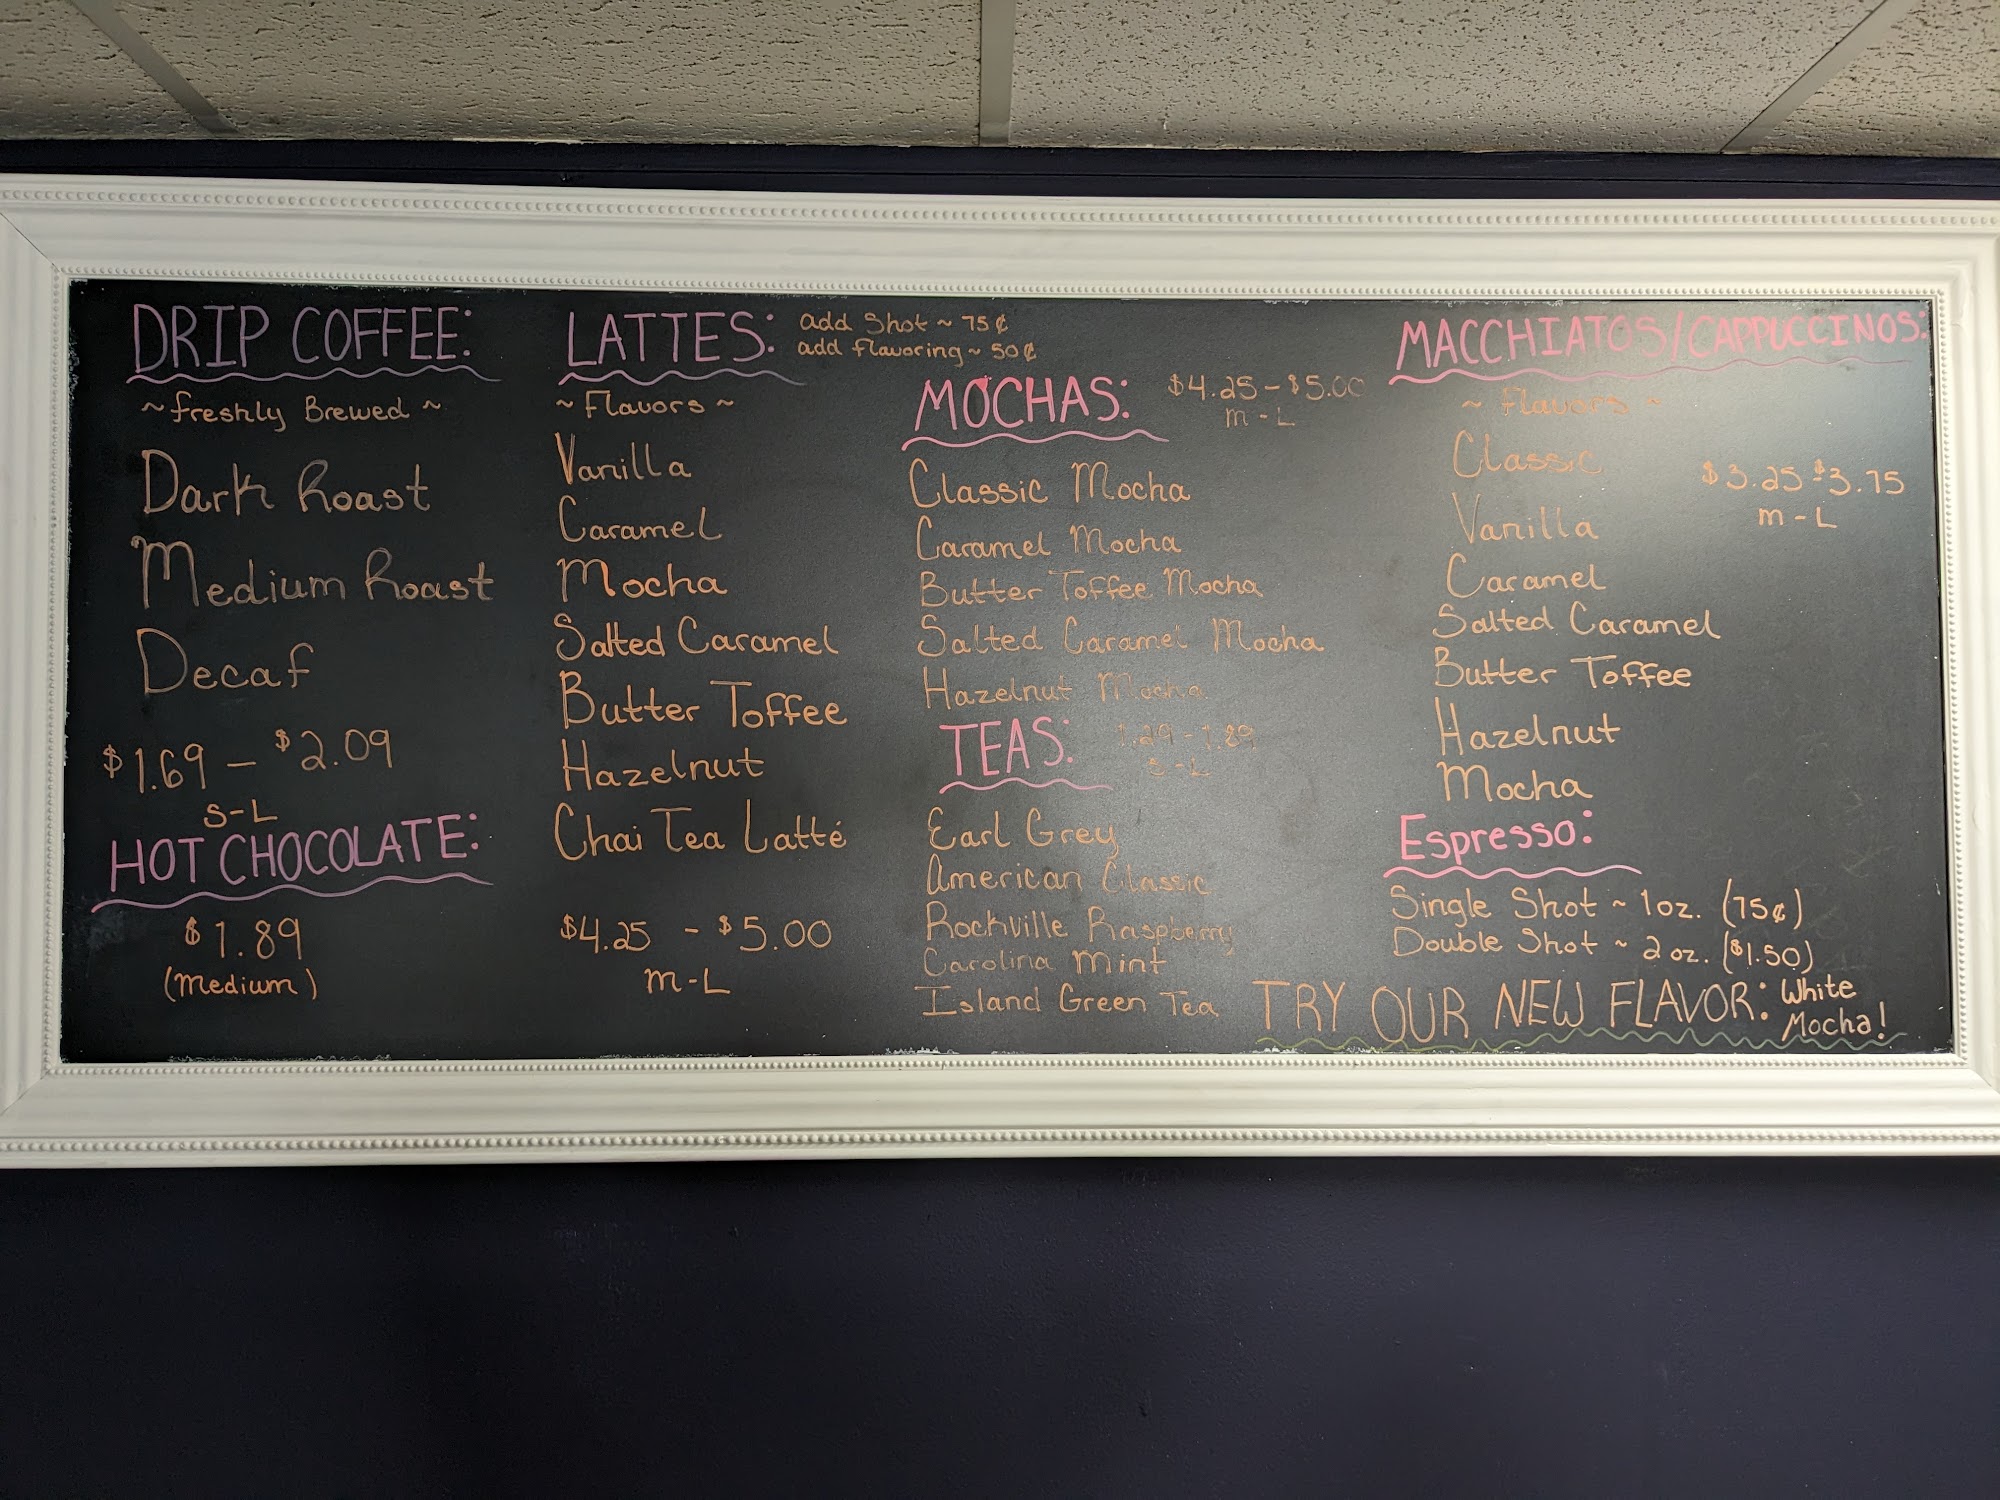 DRIP COFFEE:
~ freshly Brewed ~
Dark Roast
Medium Roast
Decaf
$1.69 - $2.09
S-L
HOT CHOCOLATE:
$1.89
(medium)
LATTES:
add Shot ~ 75¢
add flavoring ~ 50¢
~ Flavors ~
Vanilla
Caramel
Mocha
Salted Caramel
Butter Toffee
Hazelnut
Chai Tea Latté
$4.25 - $5.00
m-L
MOCHAS:
$4.25 - $5.00
m - L
Classic Mocha
Caramel Mocha
Butter Toffee Mocha
Salted Caramel Mocha
Hazelnut Mocha
TEAS:
1.29 - 1.89
S-L
Earl Grey
American Classic
Rockville Raspberry
Carolina Mint
Island Green Tea
MACCHIATOS/CAPPUCCINOS:
~ Flavors ~
Classic
Vanilla
Caramel
Salted Caramel
Butter Toffee
Hazelnut
Mocha
$3.25-$3.75
m - L
Espresso:
Single Shot ~ 1oz. (75¢)
Double Shot ~ 2 oz. ($1.50)
TRY OUR NEW FLAVOR: White
Mocha!